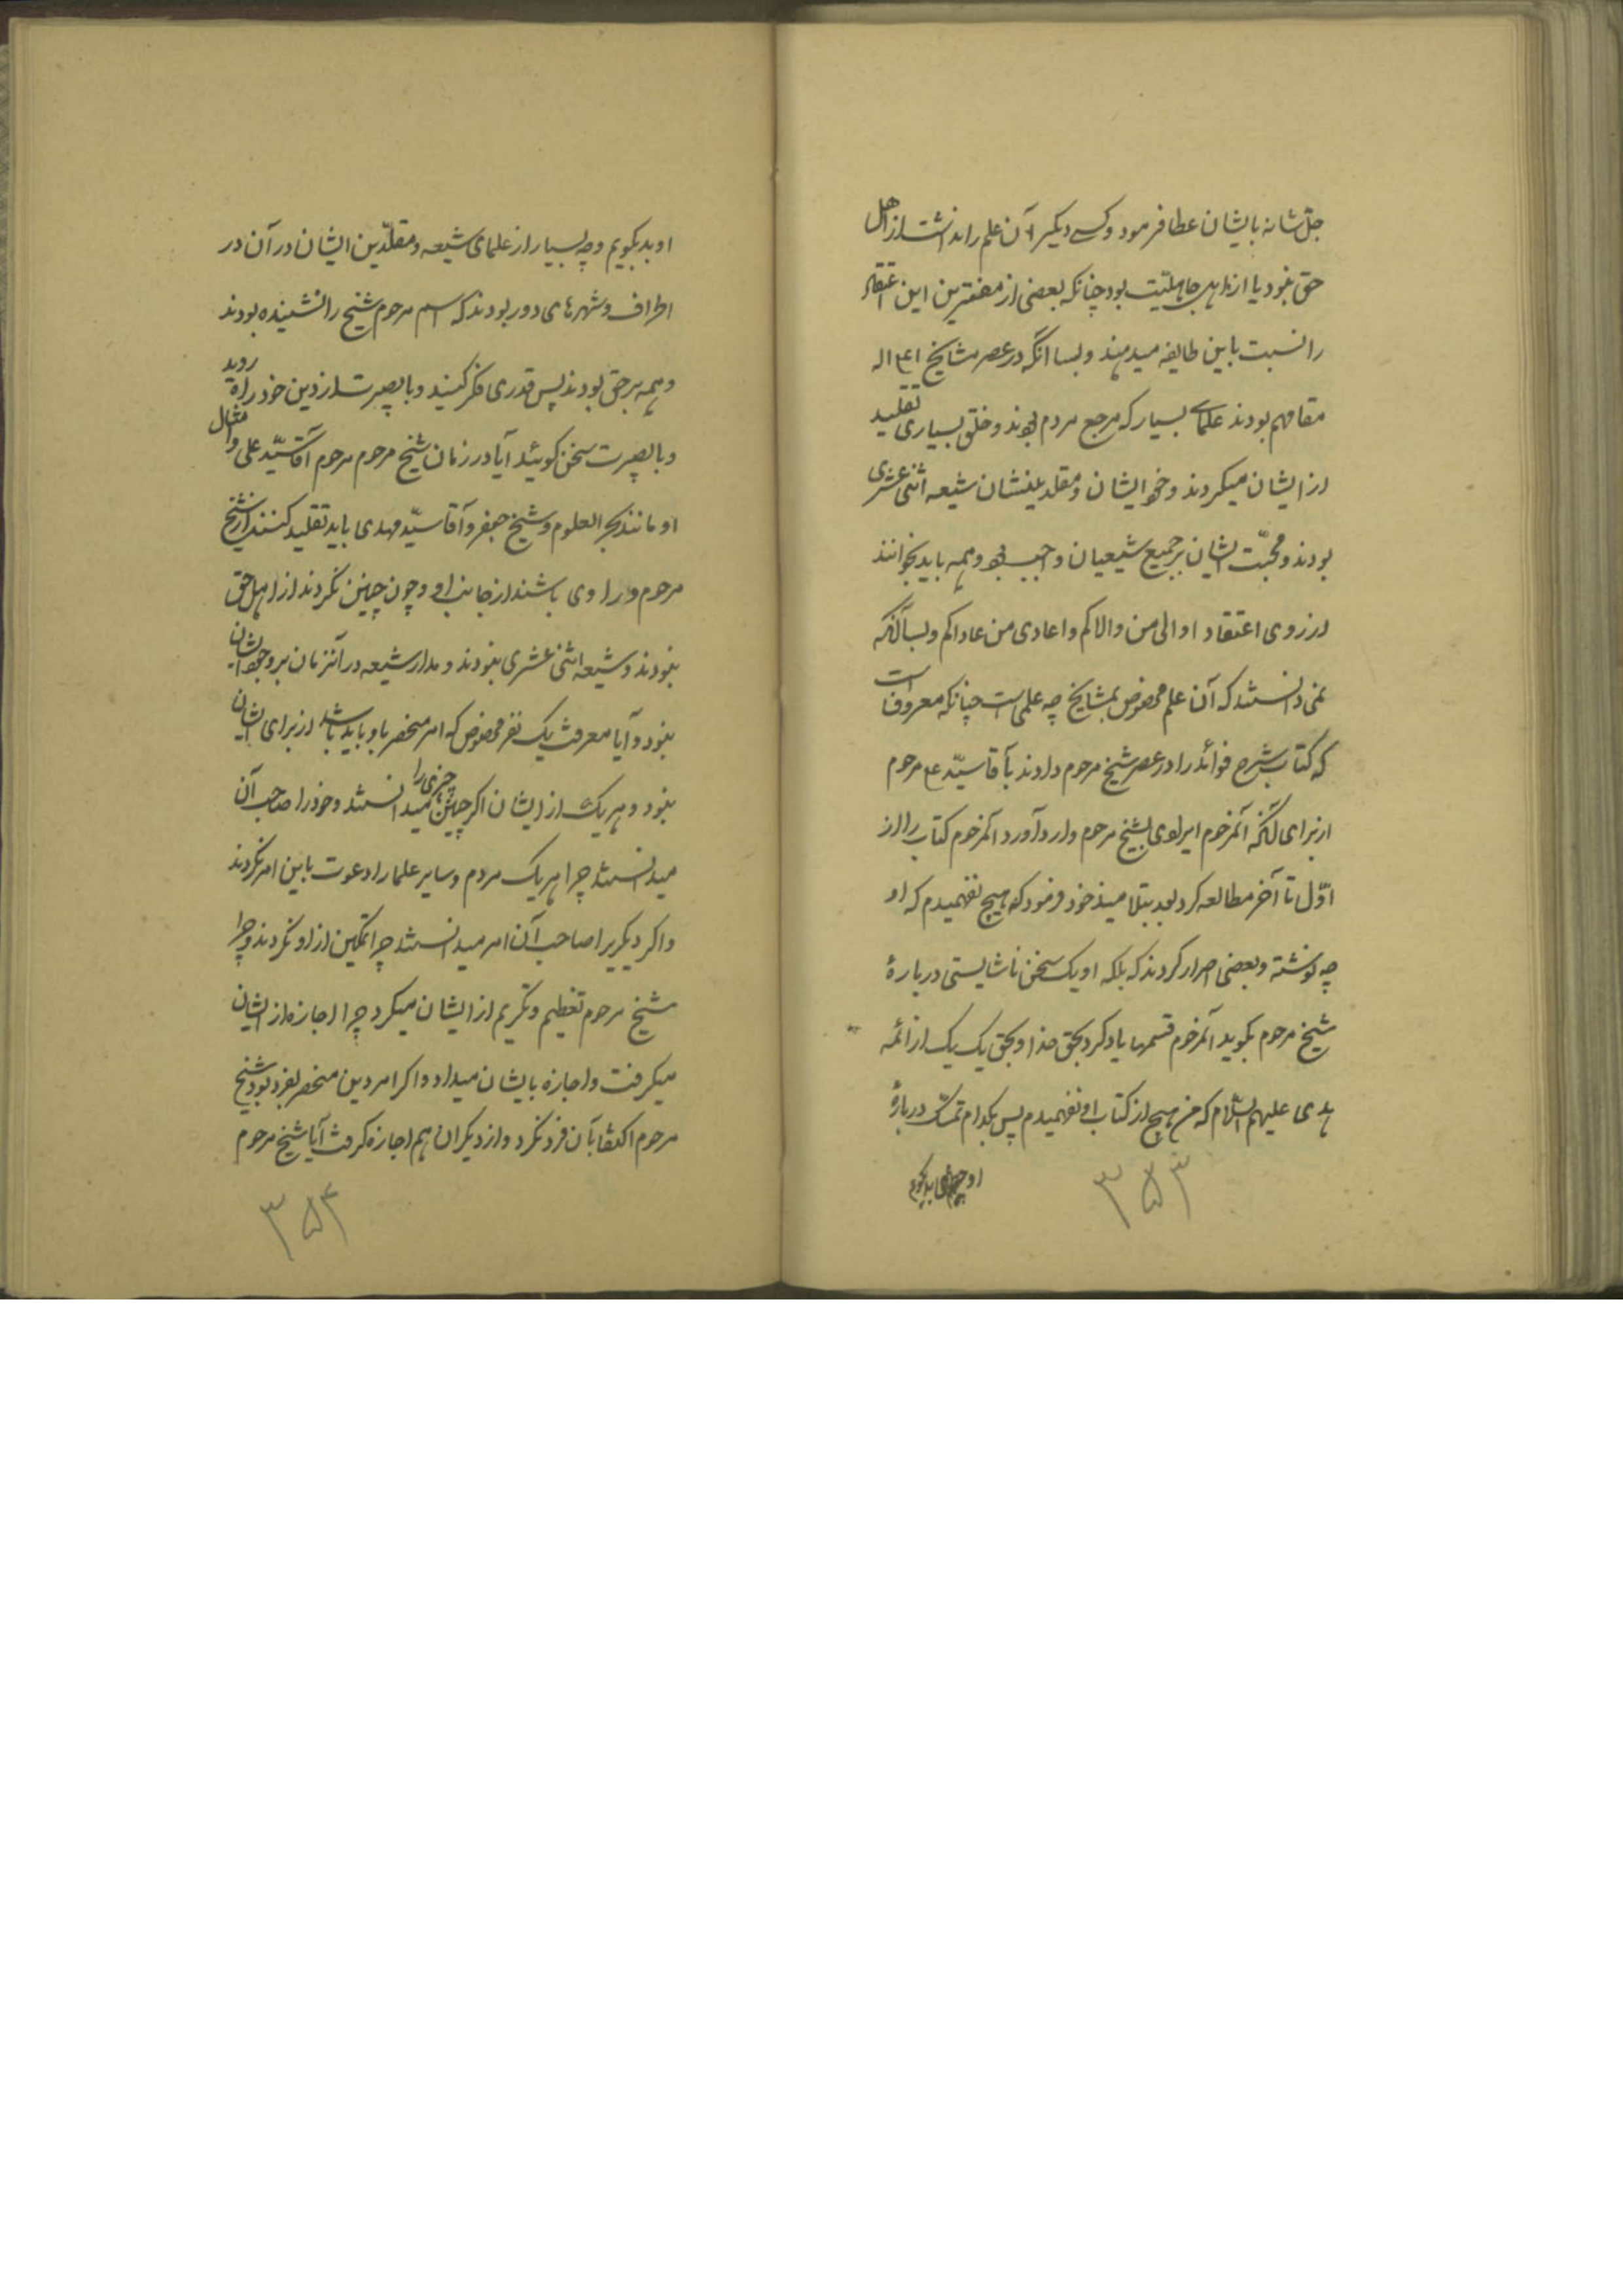 جلّ شانه بایشان عطا فرمود و کسی دیگر آن علم را نداشت از اهل
حق نبود یا از اهل جاهلیّت بود چنانکه بعضی از مفترین این اعتقاد
را نسبت باین طایفه میدهند و بسا آنکه در عصر مشایخ اع اله
مقامهم بودند علمای بسیار که مرجع مردم بودند و خلق بسیاری تقلید
از ایشان میکردند و خود ایشان و مقلدینشان شیعه اثنی عشری
بودند و محبّت ایشان بر جمیع شیعیان واجب بود و همه باید بخوانند
از روی اعتقاد اوالی من والاکم و اعادی من عاداکم و بسا آنکه
نمی دانستند که آن علم مخصوص بمشایخ چه علمی است چنانکه معروف است
که کتاب شرح فوائد را در عصر شیخ مرحوم دادند بآقا سیّد ع مرحوم
از برای آنکه آنمرحوم ایرادی بشیخ مرحوم وارد آورد آنمرحوم کتاب را از
اوّل تا آخر مطالعه کرد بعد بتلامیذ خود فرمود که هیچ نفهمیدم که او
چه نوشته و بعضی اصرار کردند که بلکه او یک سخن ناشایستی دربارهٔ
شیخ مرحوم بگوید آنمرحوم قسمها یاد کرد بحق خدا و بحق یک یک از ائمه
هدی علیهم السّلام که من هیچ از کتاب او نفهمیدم پس بکدام تمسّک دربارهٔ
او بد بگویم
۳۵۳
او بد بگویم و چه بسیار از علمای شیعه و مقلّدین ایشان در آن در
اطراف و شهرهای دور بودند که اسم مرحوم شیخ را نشنیده بودند
و همه بر حق بودند پس قدری فکر کنید و با بصیرت از دین خود راه روید
و با بصیرت سخن گوئید آیا در زمان شیخ مرحوم مرحوم آقا سیّد علی و امثال
او مانند بحر العلوم و شیخ جعفر و آقا سیّد مهدی باید تقلید کنند از شیخ
مرحوم و راوی باشند از جانب او و چون چنین نکردند از اهل حق
نبودند و شیعه اثنی عشری نبودند و مدار شیعه در آنزمان بر وجود ایشان
نبود و آیا معرفت یک نفر مخصوص که امر منحصر باو باید باشد از برای ایشان
نبود و هر یک از ایشان اگر چنین چیزی را میدانستند و خود را صاحب آن
میدانستند چرا هر یک مردم و سایر علما را دعوت باین امر نکردند
و اگر دیگریرا صاحب آن امر میدانستند چرا تمکین از او نکردند و چرا
شیخ مرحوم تعظیم و تکریم از ایشان میکرد چرا اجازه از ایشان
میگرفت و اجازه بایشان میداد و اگر امر دین منحصر بفرد بود شیخ
مرحوم اکتفا بآن فرد نکرد و از دیگران هم اجازه گرفت آیا شیخ مرحوم
۳۵۴